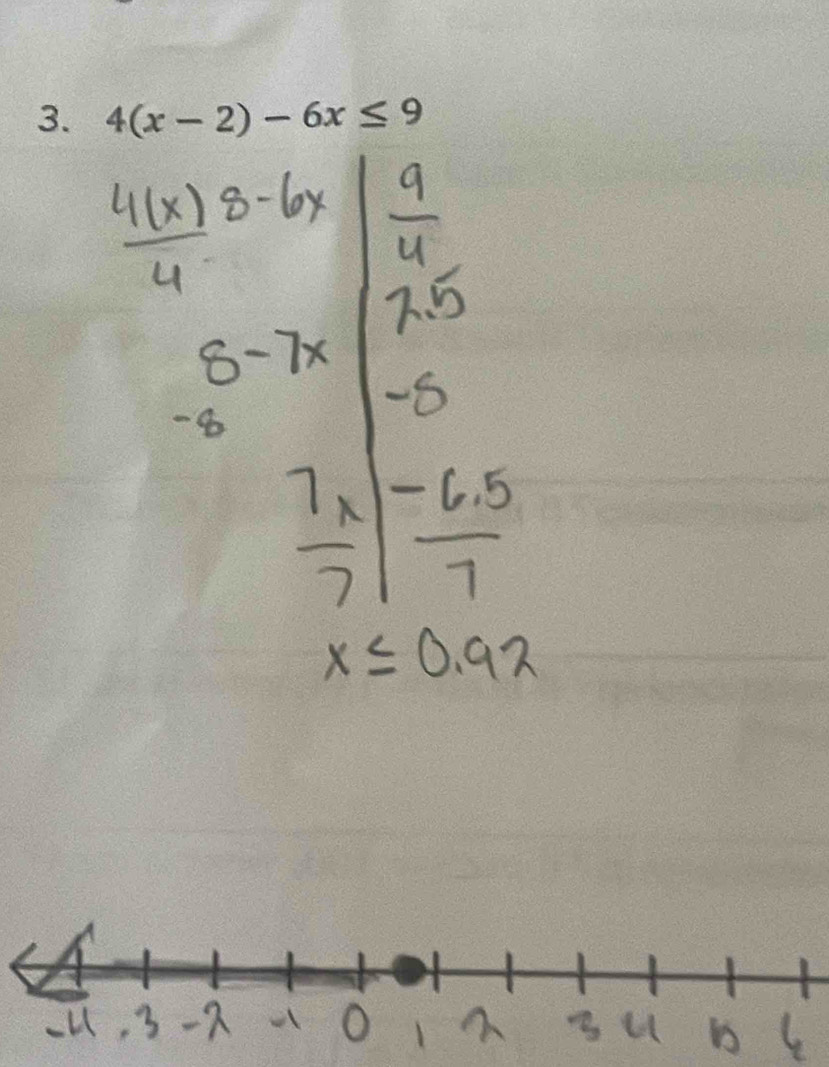 3. 4(x − 2) − 6x ≤ 9
4(x) 8-6x | 9
4 | 4
2.5
8-7x
-8 | -8
7x | -6.5
7 | 7
x ≤ 0.92
-4 -3 -2 -1 0 1 2 3 4 5 6